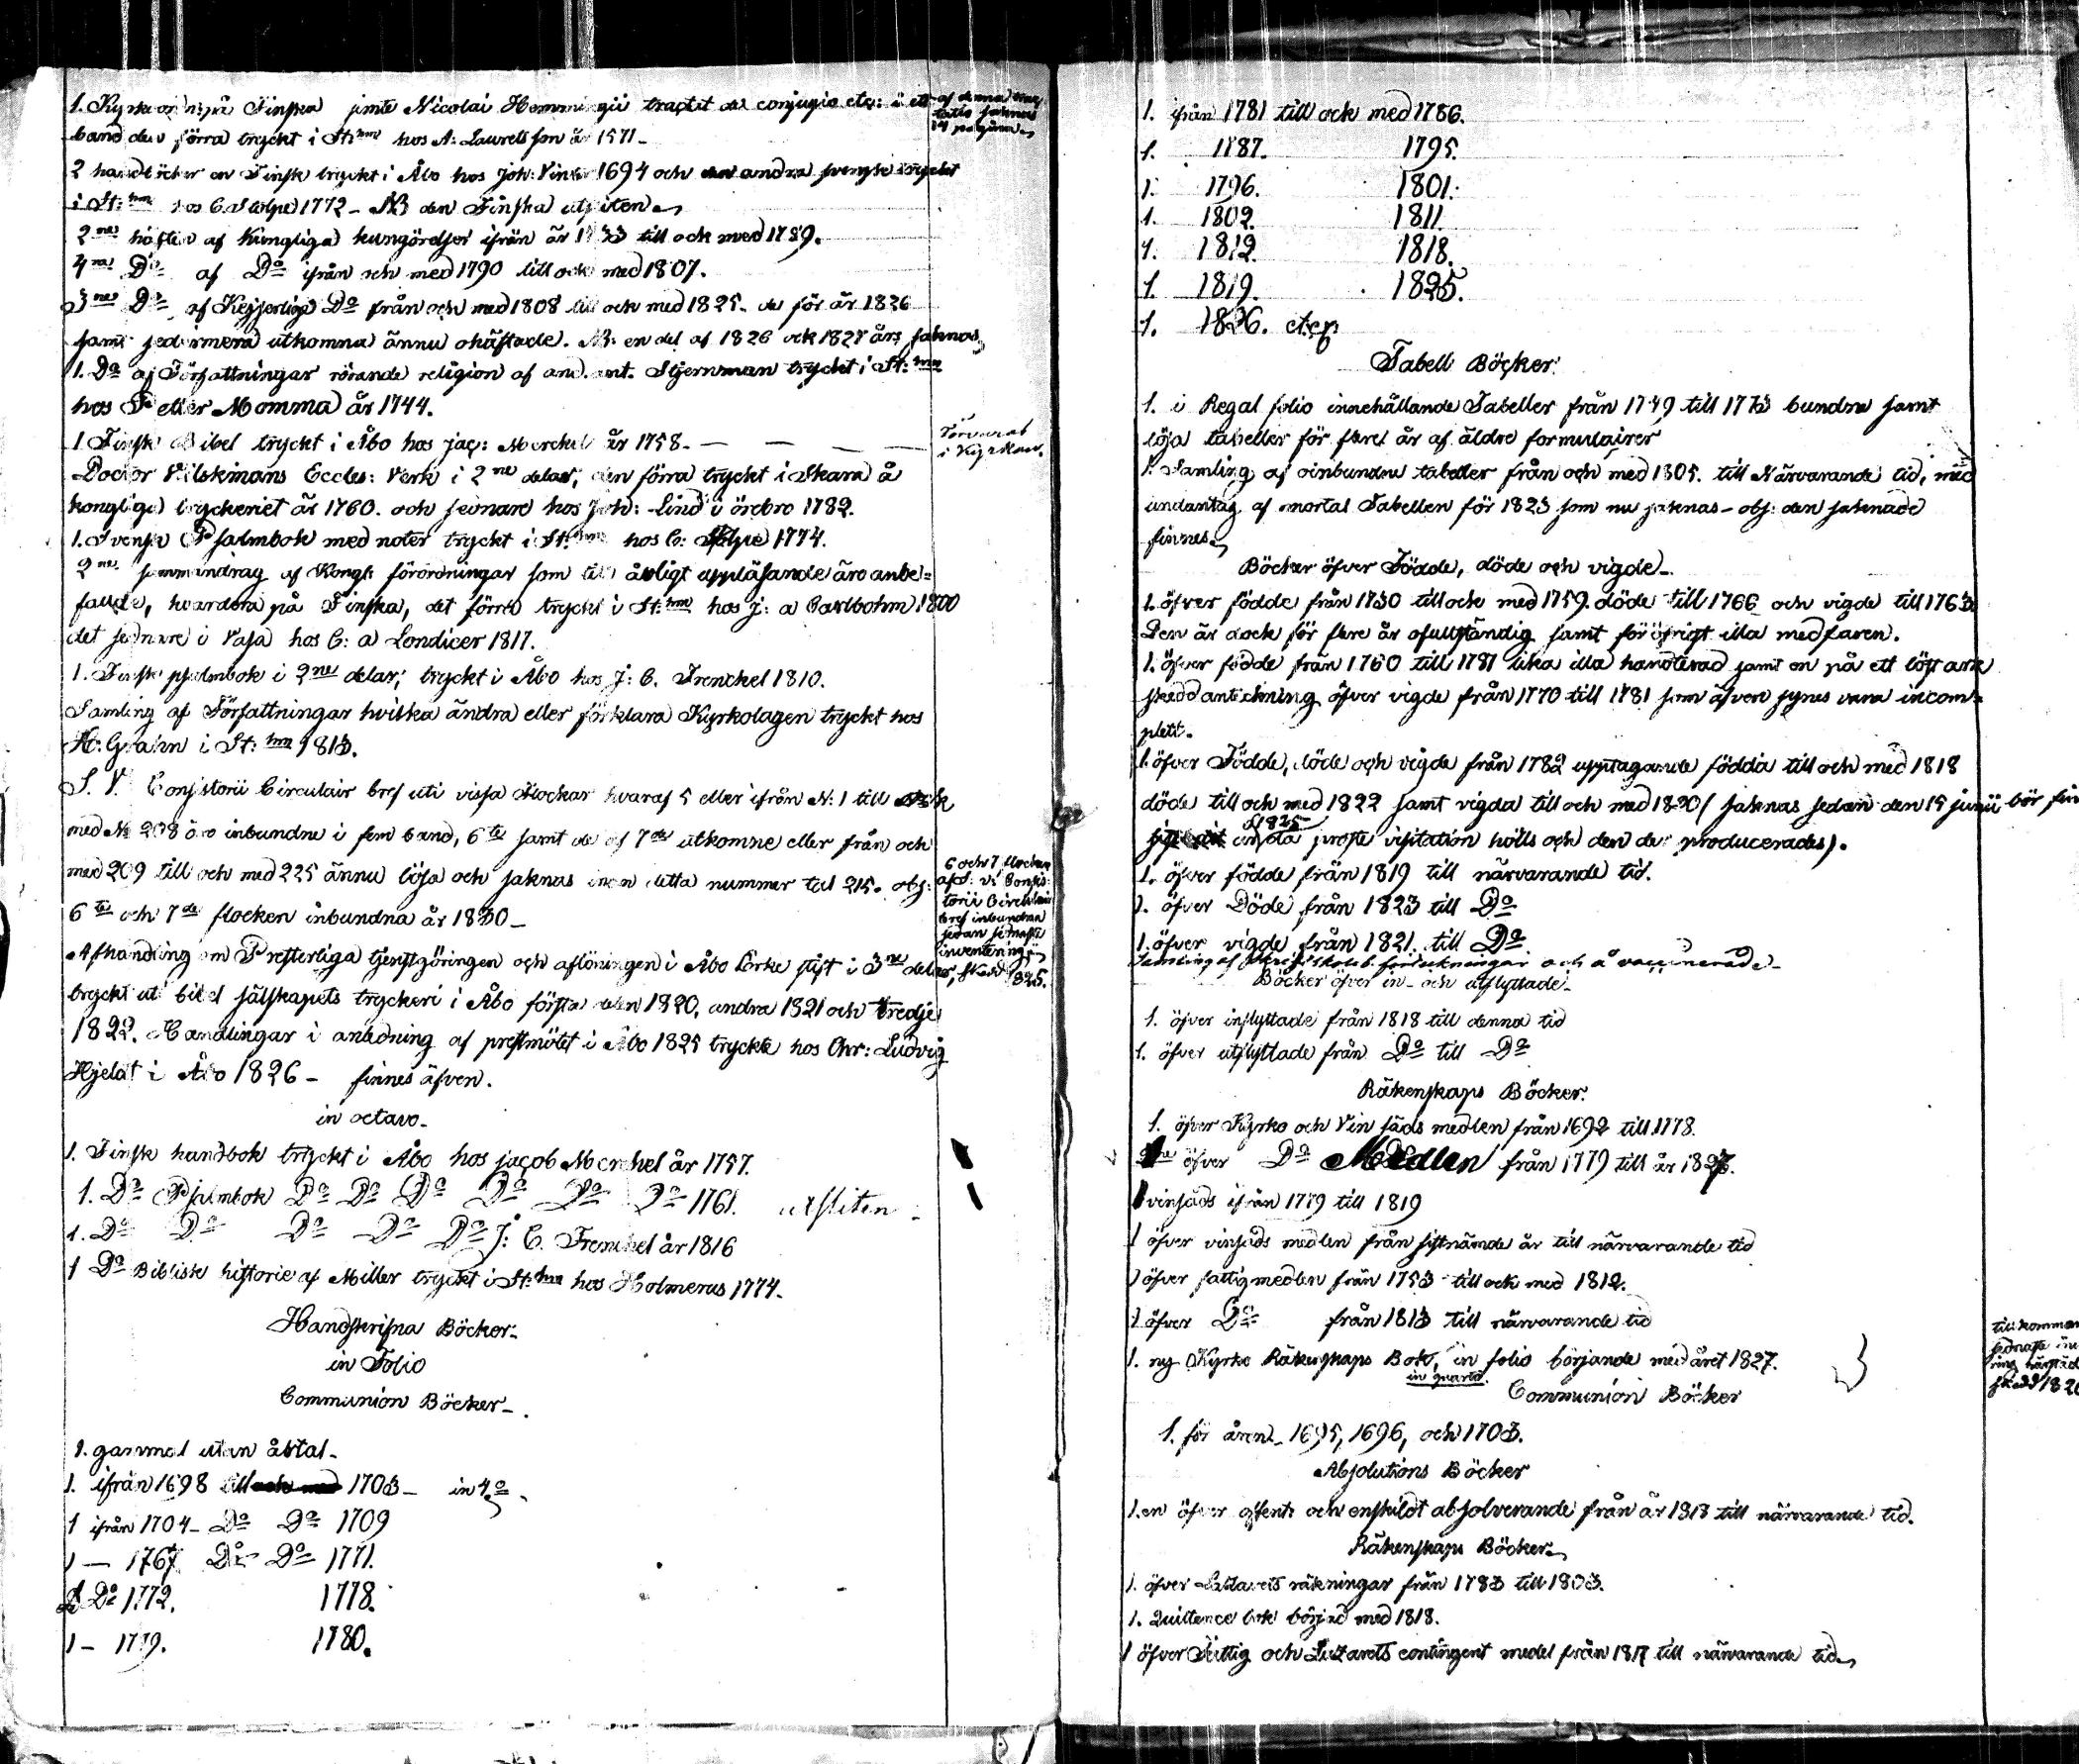 1. Kyrkoordn: på Finska jemte Nicolai Hemmingii tractat de conjugio etc: i ett
band den förra tryckt i St:hm hos A: Laurets son år 1571 –
af denna trac
tatio saknas
14 paginas
2 handböcker en Finsk tryckt i Åbo hos Joh: Vinter 1694 och den andra svenske tryckt
i St:hm hos C. Stolpe 1772 – NB den Finska utsliten
2ne häften af Kungliga kungörelser ifrån år 1733 till ock med 1789.
4ra Do af Do ifrån och med 1790 till ock med 1807.
3ne Do af Kejserliga Do från och med 1808 till och med 1825. de för år 1826
samt sedermera utkomna ännu ohäftade. NB: en del af 1826 ock 1827 års saknas
1. Do af Författningar rörande religion af And. Ant. Stjernman tryckt i St:hm
hos Petter Momma år 1744.
1 Finsk Bibel tryckt i Åbo hos Jac: Merckel år 1758. – – – –
Förvarat
i Kyrkan.
Doctor Wilskmans Eccles: Verk i 2ne delar, den förra tryckt i Skara å
kongliga tryckeriet år 1760. och senare hos Joh: Lind i örebro 1782.
1. Svensk Psalmbok med noter tryckt i St:hm hos C: Stolpe 1774.
2ne sammandrag af Kongl: förordningar som till årligt uppläsande äro anbe=
fallde, hvardera på Finska, det förra tryckt i St:hm hos J: A Carlbohm 1800
det sednare i Vasa hos C: A Londicer 1817.
1. Finsk psalmbok i 2ne delar, tryckt i Åbo hos J: C. Frenckel 1810.
Samling af Författningar hvilka ändra eller förklara Kyrkolagen tryckt hos
H: Grahn i St:hm 1813.
S. V. Consistorii Circulair bref uti vissa Flockar hvaraf 5 eller ifrån N: 1 till och
med N 208 äro inbundne i fem band, 6te samt de af 7de utkomne eller från och
med 209 till och med 225 ännu lösa och saknas inom detta nummer tal 215. obs:
6te och 7de flocken inbundna år 1830 –
6 och 7 flocken
af S: V: Consis
torii Circulair
bref inbundna
sedan senaste
inventering
skedd 1825.
Afhandling om Presterliga tjenstgöringen och aflöningen i Åbo Ärke stift i 3ne delar,
tryckt uti bibel sälskapets tryckeri i Åbo första delen 1820, andra 1821 och tredje
1822. Handlingar i anledning af prestmötet i Åbo 1825 tryckte hos Chr: Ludvig
Hjelt i Åbo 1826 – finnes äfven.
in octavo –
1. Finsk handbok tryckt i Åbo hos Jacob Merckel år 1757.
1. Do Psalmbok Do Do Do Do Do Do 1761. utsliten –
1. Do Do Do Do Do J: C. Frenckel år 1816
1 Do Biblisk historie af Miller tryckt i St:hm hos Holmerus 1774.
Handskrifna Böcker.
in Folio
Communion Böcker –
1. gammal utan årtal –
1. ifrån 1698 till och med 1703 – in 4o
1 ifrån 1704 – Do Do 1709
1 – 1767. Do Do 1771.
1 Do 1772. 1778.
1 – 1779. 1780.
1. ifrån 1781 till ock med 1786.
1. 1787. 1795.
1. 1796. 1801.
1. 1802. 1811.
1. 1812. 1818.
1. 1819. 1825.
1. 1826. etc
Tabell Böcker.
1. i Regal folio innehållande Tabeller från 1749 till 1773 bundne samt
lösa tabeller för flere år af äldre formulairer
1. Samling af oinbundne tabeller från och med 1805. till Närvarande tid, med
undantag af mortal Tabellen för 1823 som nu saknas – obs: den saknade
finnes
Böcker öfver Födde, döde och vigde –
1. öfver födde från 1730 till ock med 1759. döde till 1766 och vigde till 1763
Den är dock för flere år ofullständig samt föröfrigt illa medfaren.
1. öfver födde från 1760 till 1781 lika illa handterad samt en på ett löst ark
skedd anteckning öfver vigde från 1770 till 1781 som äfven synes vara incom=
plett.
1. öfver Födde, döde och vigde från 1782 upptagande födda till och med 1818
döde till och med 1822 samt vigda till och med 1820 (saknas sedan den 15 junii
1825
då proste visitation hölls och den der producerades).
1. öfver födde från 1819 till närvarande tid.
1. öfver Döde från 1823 till Do
1. öfver vigde från 1821. till Do
Samling af förteckningar och å vaccinerade –
Böcker öfver in – och utflyttade –
1. öfver inflyttade från 1818 till denna tid
1. öfver utflyttade från Do till Do
Räkenskaps Böcker.
1. öfver Kyrko och Vin säds medlen från 1692 till 1778.
2ne öfver Do Medlen från 1779 till år 1827.
1 vinsäds ifrån 1779 till 1819
1 öfver vinsäds medlen från sistnämde år till närvarande tid
1 öfver fattig medlen från 1753 till ock med 1812.
1 öfver Do från 1813 till närvarande tid
1. ny Kyrko Räkenskaps Bok, in folio börjande med året 1827.
in quarto. Communion Böcker
1. för åren – 1695, 1696, och 1703.
Absolutions Böcker
1. en öfver offent: och enskildt absolverande från år 1818 till närvarande tid.
Räkenskaps Böcker
1. öfver Lazarets räkningar från 1783 till 1803.
1. Quittence bok börjad med 1818.
1 öfver Fattig och Lazarets contingent medel från 1817 till närvarande tid